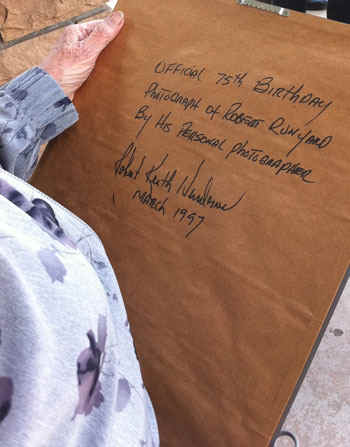 Official 75th Birthday
Photograph of Robert Runyard
By His Personal Photographer
Robert Keith
March 1997